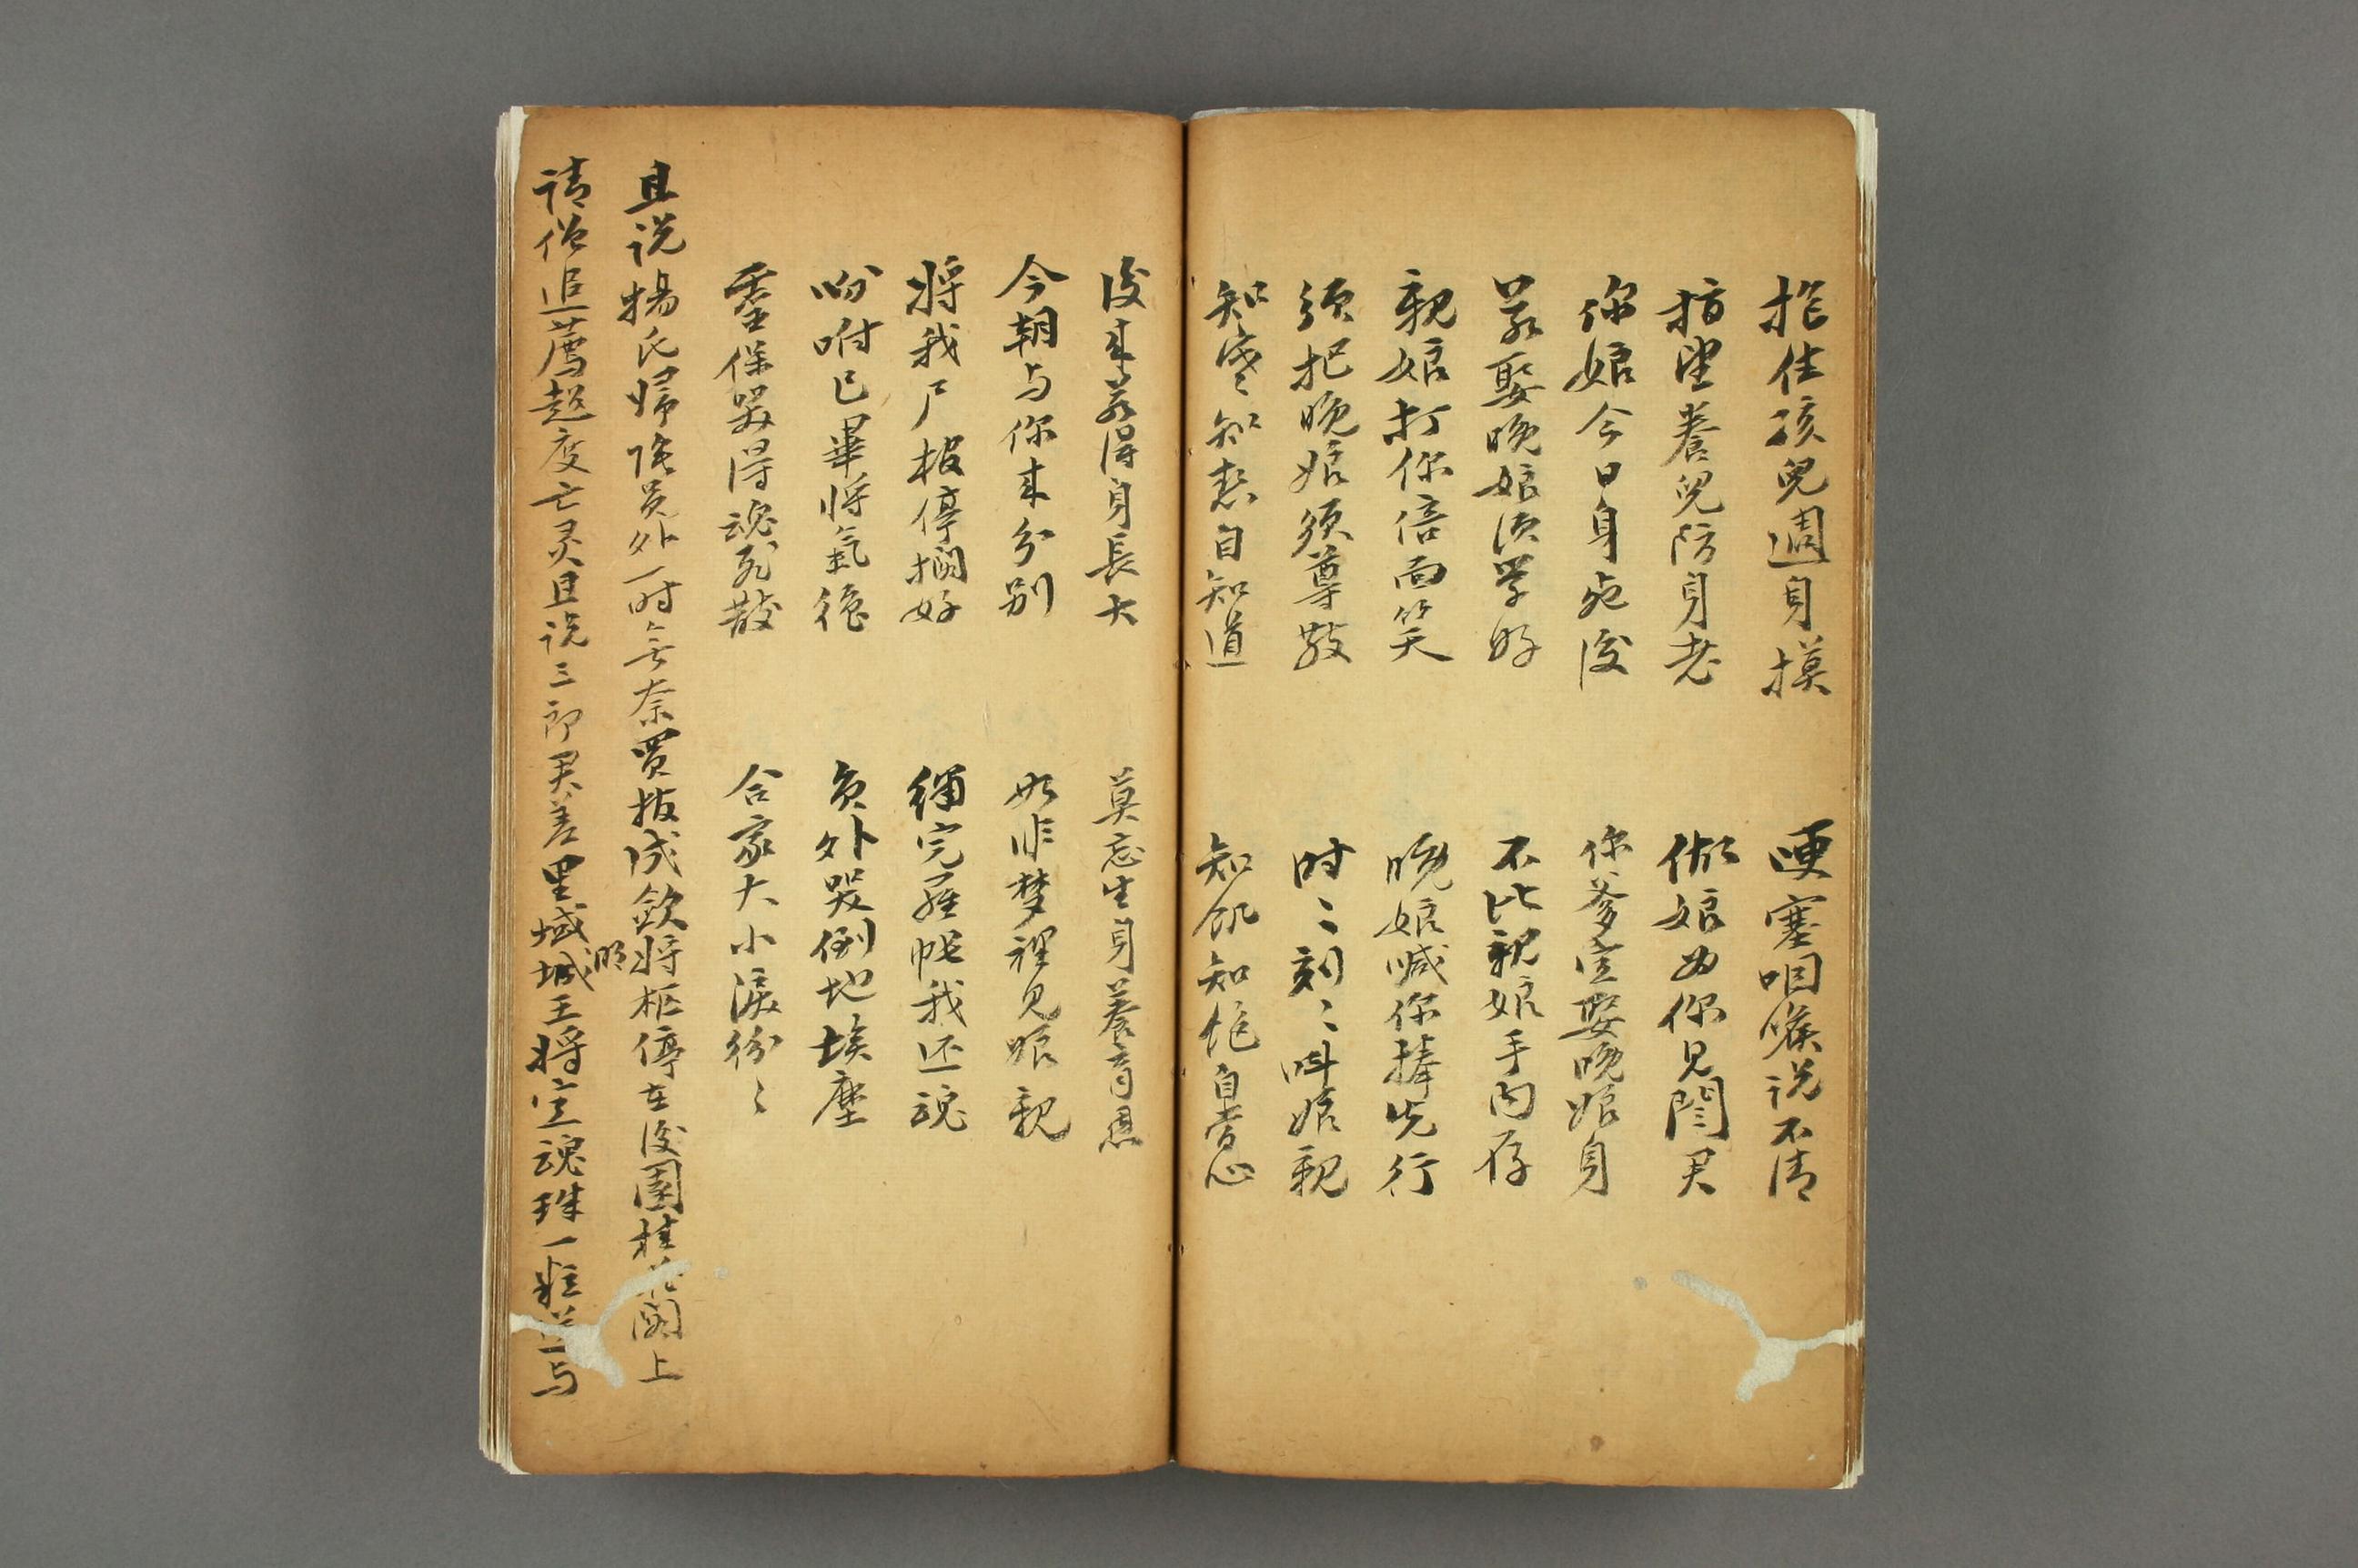 扯住孩兒週身摸　哽塞咽喉说不清
指望養兒防身老　做娘如你見閻君
你娘今日身死後　你爹定娶晚娘身
若娶晚娘须学好　不比親娘手内存
親娘打你倍面笑　晚娘喊你捧先行
须把晚娘须尊敬　时〻刻〻呌娘親
知寒知热自知道　知饥知饱自当心
後来若得身長大　莫忘生身養育恩
今朝与你来分别　如非梦裡見娘親
将我尸板停擱好　綉完羅帐我还魂
吩咐已畢将氣絶　员外哭倒地埃塵
靈保哭得魂死散　合家大小淚纷〻
且说楊氏归陰员外一时无奈買板成歛将柩停在後園桂花阁上
请僧追薦超度亡灵且说三郎君差里域湖城王将定魂珠一粒送与